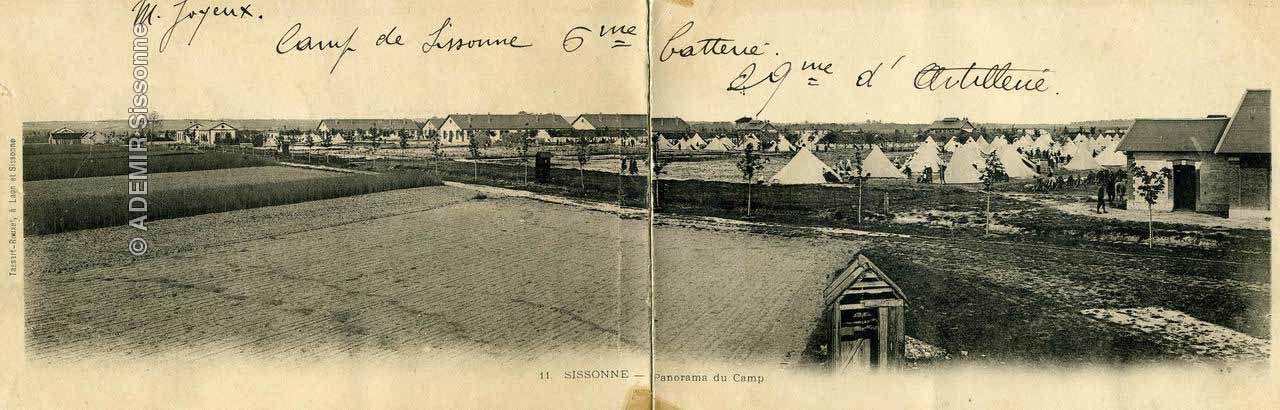 M. Joyeux.
Camp de Sissonne 6me batterie.
29me d'Artillerie.
© ADEMIR-Sissonne
Tassart-Rouzet, à Laon et Sissonne
11. SISSONNE — Panorama du Camp